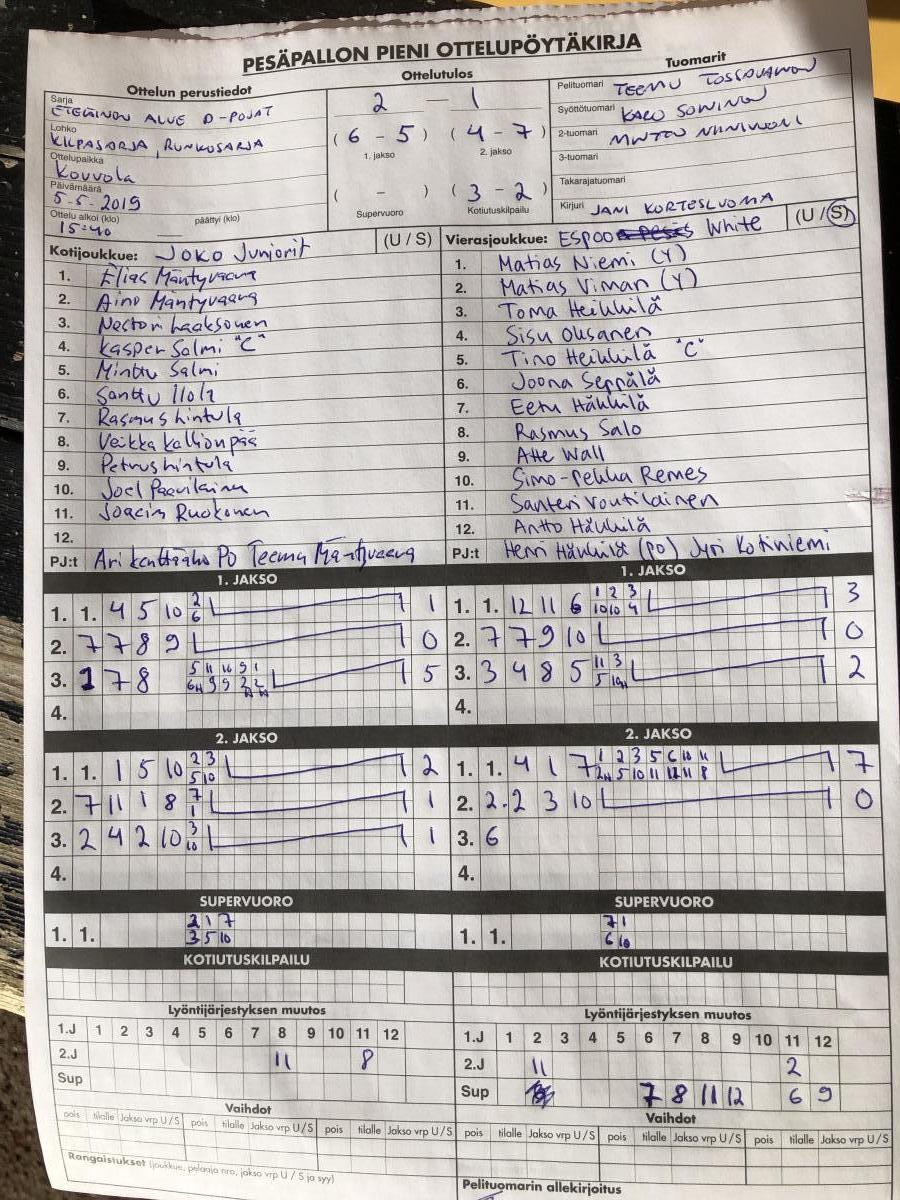 PESÄPALLON PIENI OTTELUPÖYTÄKIRJA
Ottelun perustiedot
Ottelutulos
Tuomarit
Sarja
ETELÄINEN ALUE D-POJAT
Lohko
KILPASARJA, RUNKOSARJA
Ottelupaikka
Kouvola
Päivämäärä
5.5.2019
Ottelu alkoi (klo) päättyi (klo)
15:40
2 — 1
(6 - 5) (4 - 7)
1. jakso 2. jakso
( - ) (3 - 2)
Supervuoro Kotiutuskilpailu
Pelituomari TEEMU
Syöttötuomari
2-tuomari
3-tuomari
Takarajatuomari
Kirjuri JANI KORTESLUOMA
Kotijoukkue: JoKo Juniorit (U / S)
1. Elias Mäntyvaara
2. Aino Mäntyvaara
3. Nestori Laaksonen
4. Kasper Salmi "C"
5. Minttu Salmi
6. Santtu Ilola
7. Rasmus Hintula
8. Veikka Kallionpää
9. Petrus Hintula
10. Joel Paavilainen
11. Joacim Ruokonen
12.
PJ:t Ari Kenttäaho PO Teemu Mäntyvaara
Vierasjoukkue: Espoo White (U / S)
1. Matias Niemi (Y)
2. Matias Viman (Y)
3. Toma Heikkilä
4. Sisu Oksanen
5. Tino Heikkilä "C"
6. Joona Seppälä
7. Eetu Häkkilä
8. Rasmus Salo
9. Atte Wall
10. Simo-Pekka Remes
11. Santeri Voutilainen
12. Antto Häkkilä
PJ:t Henri Häkkilä (PO) Jyri Kotiniemi
1. JAKSO
1. 1. 4 5 10 2 1
6
2. 7 7 8 9 0
3. 1 7 8 5
4.
1. JAKSO
1. 1. 12 11 6 1 2 3 3
10 10 4
2. 7 7 9 10 0
3. 3 4 8 5 11 3 2
4.
2. JAKSO
1. 1. 1 5 10 2 3 2
5 10
2. 7 11 1 8 7 1
1
3. 2 4 2 10 3 1
10
4.
2. JAKSO
1. 1. 4 1 7 1 2 3 5 6 10 11 7
2. 2. 2 3 10 0
3. 6
4.
SUPERVUORO
1. 1. 2 1 7
3 5 10
SUPERVUORO
1. 1. 7 1
6 10
KOTIUTUSKILPAILU
KOTIUTUSKILPAILU
Lyöntijärjestyksen muutos
1.J 1 2 3 4 5 6 7 8 9 10 11 12
2.J 11 8
Sup
Lyöntijärjestyksen muutos
1.J 1 2 3 4 5 6 7 8 9 10 11 12
2.J 11 2
Sup 7 8 11 12 6 9
Vaihdot
pois tilalle Jakso vrp U / S pois tilalle Jakso vrp U / S pois tilalle Jakso vrp U / S
Vaihdot
pois tilalle Jakso vrp U / S pois tilalle Jakso vrp U / S pois tilalle Jakso vrp U / S
Rangaistukset (joukkue, pelaaja nro, jakso vrp U / S ja syy)
Pelituomarin allekirjoitus